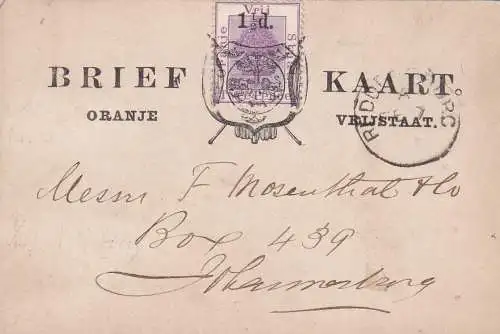 Vrij
1½d.
BRIEF KAART.
ORANJE VRIJSTAAT.
Messrs F Mosenthal & Co
Box 439
Johannesburg